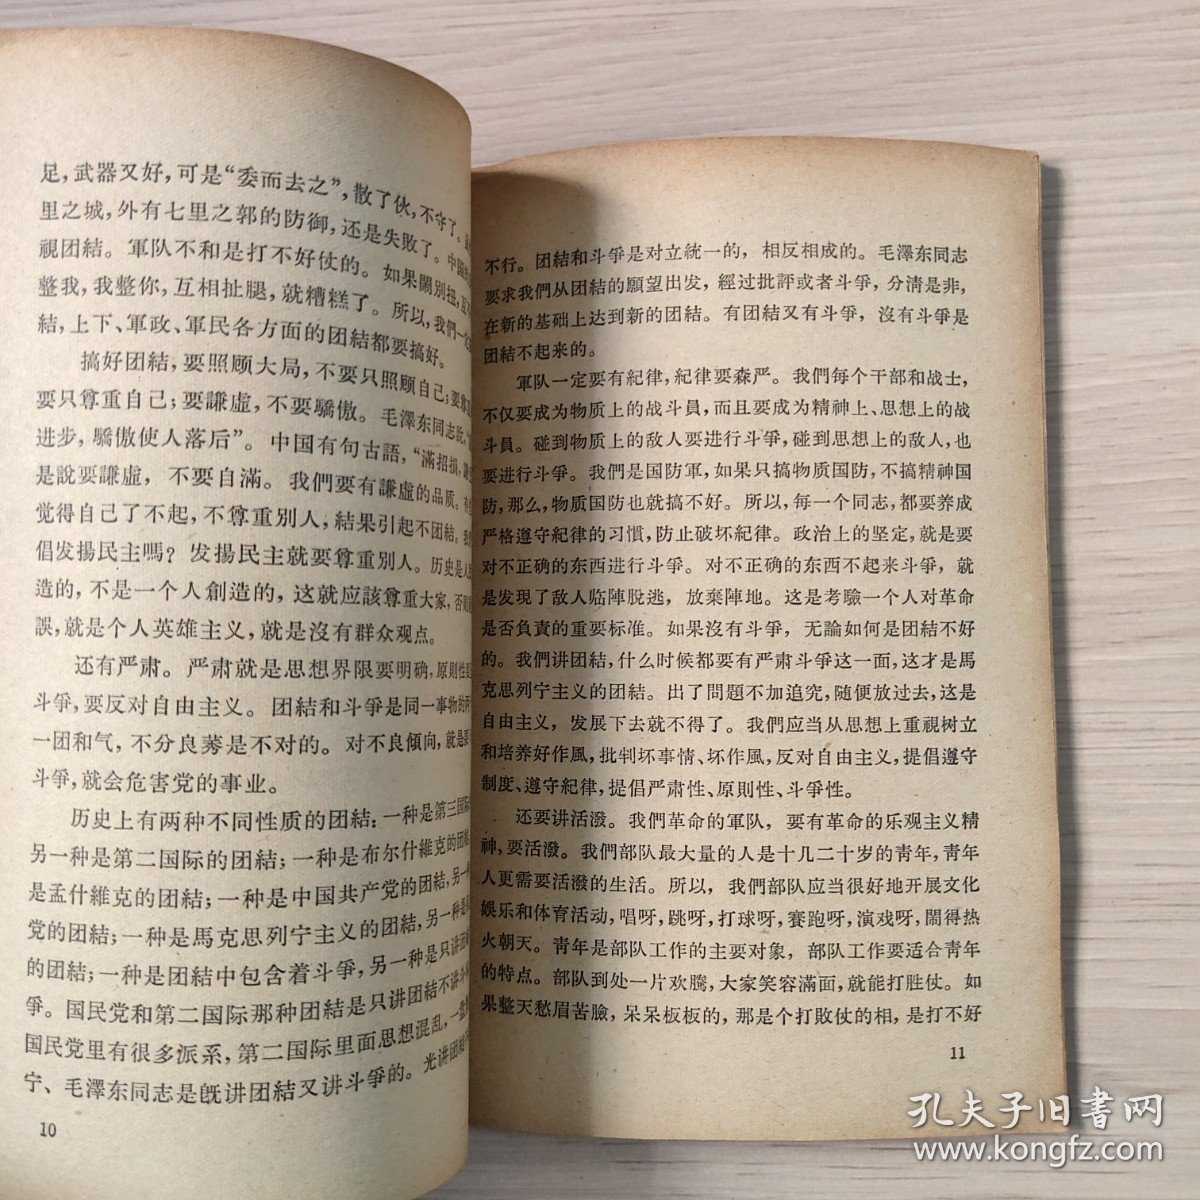 足，武器又好，可是“委而去之”，散了伙，不守了。
里之城，外有七里之郭的防御，还是失敗了。中国
視团結。軍队不和是打不好仗的。如果閙別扭，互
整我，我整你，互相扯腿，就糟糕了。所以，我們一
結，上下、軍政、軍民各方面的团結都要搞好。
搞好团結，要照顾大局，不要只照顾自己；要尊
要只尊重自己；要謙虛，不要驕傲。毛澤东同志說，
进步，驕傲使人落后”。中国有句古語，“滿招損，
是說要謙虛，不要自滿。我們要有謙虛的品质。有
觉得自己了不起，不尊重別人，結果引起不团結。
倡发揚民主嗎？发揚民主就要尊重別人。历史是人
造的，不是一个人創造的，这就应該尊重大家，否
誤，就是个人英雄主义，就是沒有群众观点。
还有严肃。严肃就是思想界限要明确，原則性
斗爭，要反对自由主义。团結和斗爭是同一事物的两
一团和气，不分良莠是不对的。对不良傾向，就是要
斗爭，就会危害党的事业。
历史上有两种不同性质的团結：一种是第三国际
另一种是第二国际的团結；一种是布尔什維克的团結，
是孟什維克的团結；一种是中国共产党的团結，另一
党的团結；一种是馬克思列宁主义的团結，另一种是
的团結；一种是团結中包含着斗爭，另一种是只讲团結不讲斗
爭。国民党和第二国际那种团結是只讲团結不讲斗
国民党里有很多派系，第二国际里面思想混乱，一
宁、毛澤东同志是旣讲团結又讲斗爭的。光讲团結
10
不行。团結和斗爭是对立統一的，相反相成的。毛澤东同志
要求我們从团結的願望出发，經过批評或者斗爭，分清是非，
在新的基础上达到新的团結。有团結又有斗爭，沒有斗爭是
团結不起来的。
軍队一定要有紀律，紀律要森严。我們每个干部和战士，
不仅要成为物质上的战斗員，而且要成为精神上、思想上的战
斗員。碰到物质上的敌人要进行斗爭，碰到思想上的敌人，也
要进行斗爭。我們是国防軍，如果只搞物质国防，不搞精神国
防，那么，物质国防也就搞不好。所以，每一个同志，都要养成
严格遵守紀律的习慣，防止破坏紀律。政治上的坚定，就是要
对不正确的东西进行斗爭。对不正确的东西不起来斗爭，就
是发現了敌人临陣脫逃，放棄陣地。这是考驗一个人对革命
是否負責的重要标准。如果沒有斗爭，无論如何是团結不好
的。我們讲团結，什么时候都要有严肃斗爭这一面，这才是馬
克思列宁主义的团結。出了問題不加追究，随便放过去，这是
自由主义，发展下去就不得了。我們应当从思想上重視树立
和培养好作風，批判坏事情、坏作風，反对自由主义，提倡遵守
制度、遵守紀律，提倡严肃性、原則性、斗爭性。
还要讲活潑。我們革命的軍队，要有革命的乐观主义精
神，要活潑。我們部队最大量的人是十几二十岁的靑年，靑年
人更需要活潑的生活。所以，我們部队应当很好地开展文化
娛乐和体育活动，唱呀，跳呀，打球呀，賽跑呀，演戏呀，閙得热
火朝天。靑年是部队工作的主要对象，部队工作要适合靑年
的特点。部队到处一片欢騰，大家笑容滿面，就能打胜仗。如
果整天愁眉苦臉，呆呆板板的，那是个打敗仗的相，是打不好
11
孔夫子旧書网
www.kongfz.com